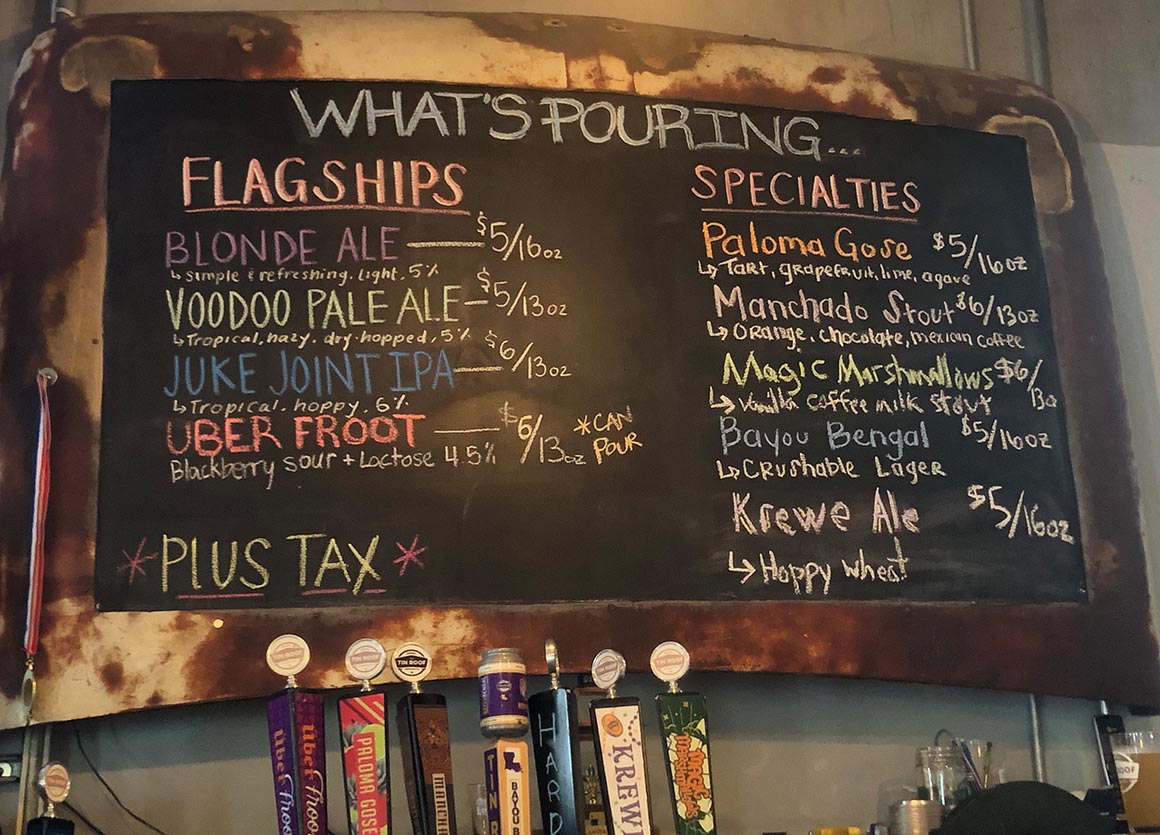 WHAT'S POURING...
FLAGSHIPS
BLONDE ALE — $5/16oz
↳ simple & refreshing. light, 5%
VOODOO PALE ALE — $5/13oz
↳ Tropical, hazy. dry-hopped, 5%
JUKE JOINT IPA — $6/13oz
↳ Tropical. hoppy. 6%
UBER FROOT — $6/13oz *CAN POUR
Blackberry sour + Lactose 4.5%
*PLUS TAX*
SPECIALTIES
Paloma Gose $5/16oz
↳ Tart, grapefruit, lime, agave
Manchado Stout $6/13oz
↳ Orange, chocolate, mexican coffee
Magic Marshmallows $6/13o
↳ Vanilla coffee milk stout
Bayou Bengal $5/16oz
↳ Crushable Lager
Krewe Ale $5/16oz
↳ Hoppy wheat
TIN ROOF
über froo
über froo
PALOMA GOSE
MANCHA
TIN R
BAYOU B
HARD
KREW
MAGIC